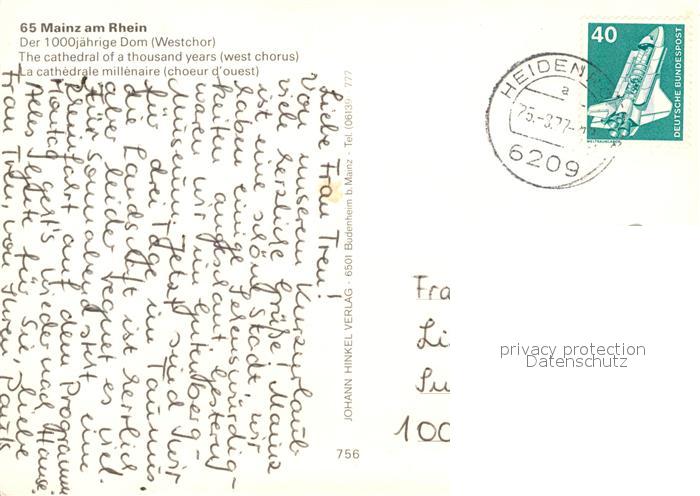 65 Mainz am Rhein
Der 1000jährige Dom (Westchor)
The cathedral of a thousand years (west chorus)
La cathédrale millénaire (choeur d'ouest)
40
DEUTSCHE BUNDESPOST
HEIDEN
a
6209
Liebe Frau Tren!
Von unserem Kurzurlaub
viele herzliche Grüße. Mainz
ist eine schöne Stadt, wir
haben einige Sehenswürdig-
keiten angeschaut, gestern
waren wir im Gutenberg-
Museum. Jetzt sind wir
für drei Tage im Taunus
die Landschaft ist herrlich
aber leider regnet es viel.
Für Sonnabend steht eine
Rheinfahrt auf dem Programm
Montag geht's wieder nach Hause.
Alles Gute für Sie, liebe
Frau Tren, von Ihren
JOHANN HINKEL VERLAG · 6501 Budenheim b. Mainz · Tel. (06139) 777
756
Fra
Li
100
privacy protection
Datenschutz